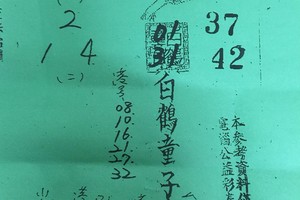 2
1 4
(二)
01
31
37
42
港号
08.
10.
16.
21.
27.
32
白鶴童子
本參考資料
電腦公益彩